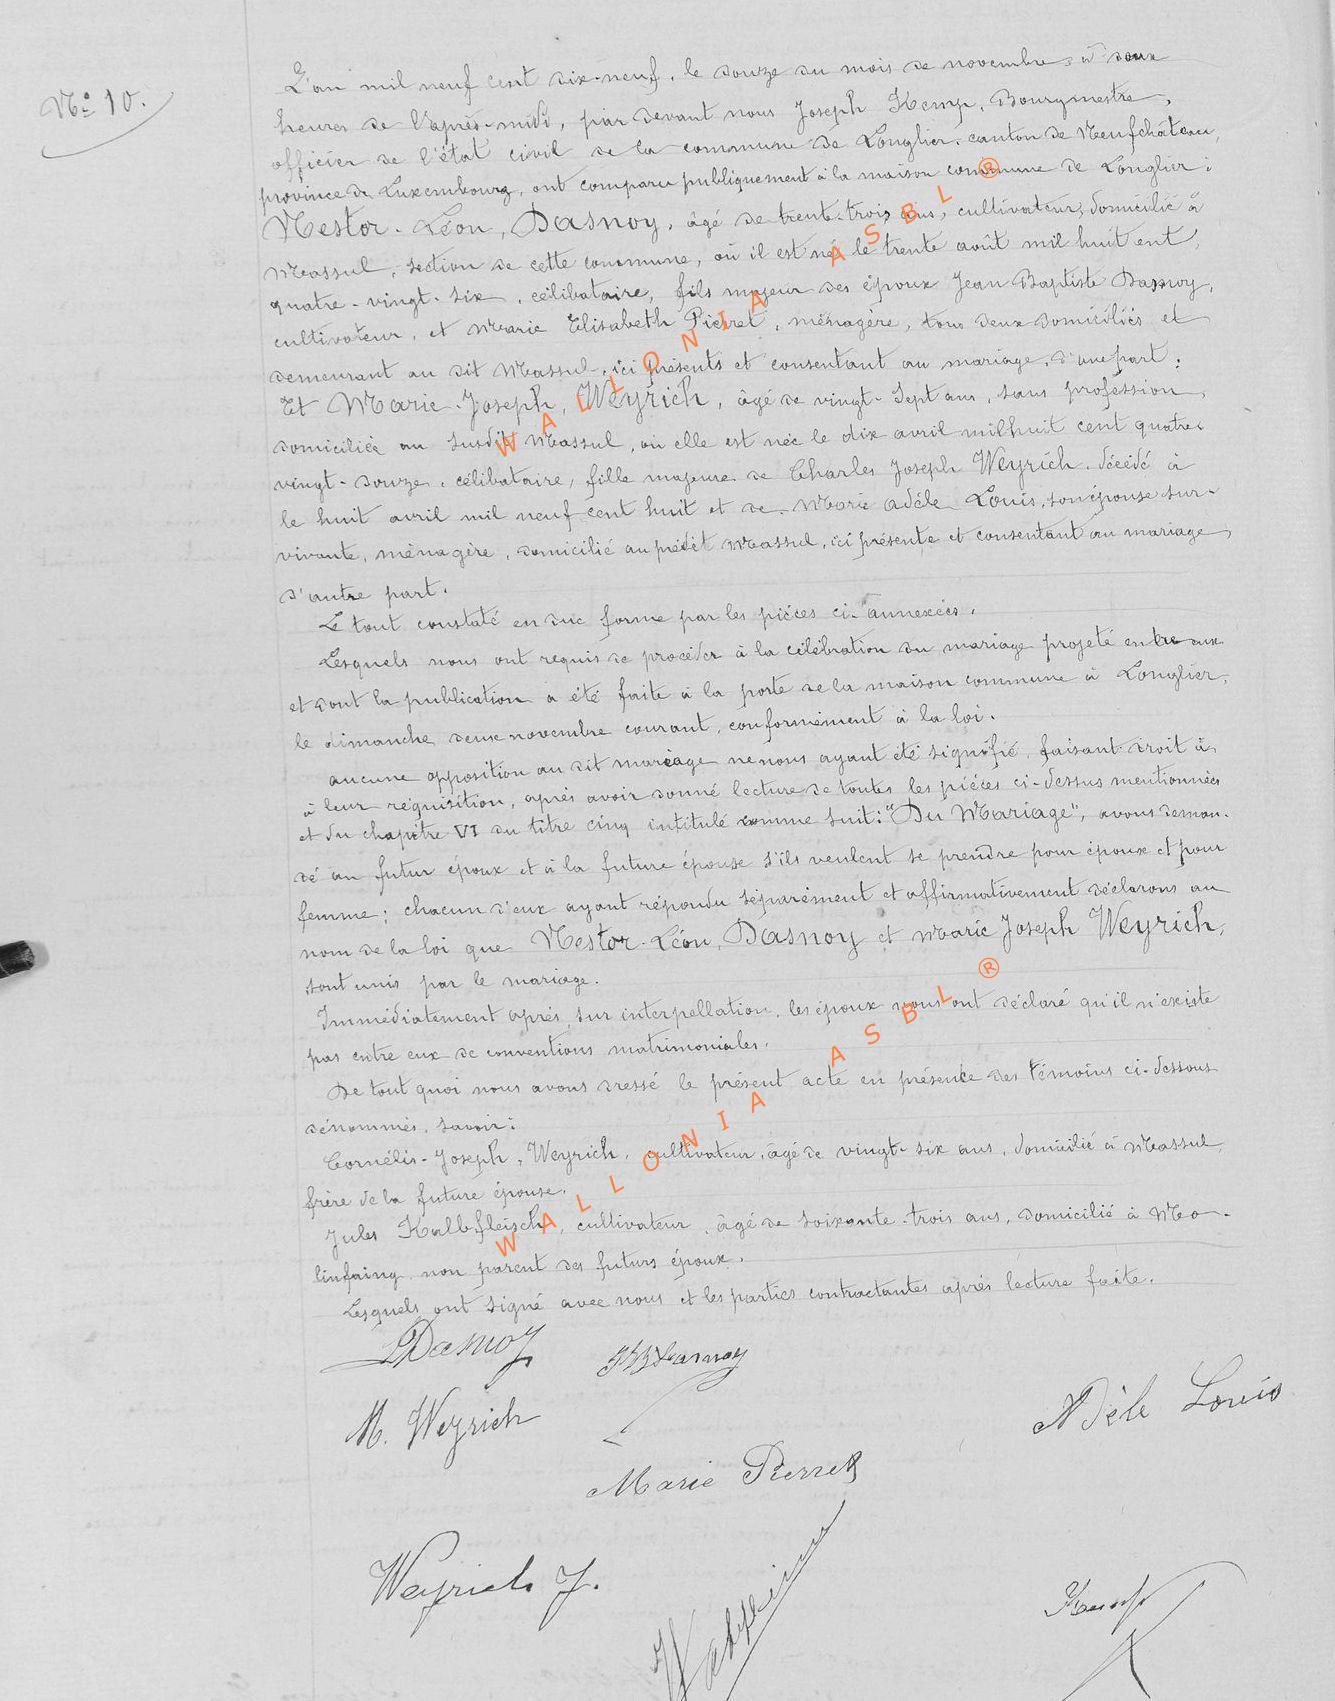 N° 10.
L'an mil neuf cent dix-neuf, le douze du mois de novembre, à deux
heures de l'après-midi, par devant nous Joseph Kemp, Bourgmestre,
officier de l'état civil de la commune de Longlier, canton de Neufchâteau,
province de Luxembourg, ont comparu publiquement à la maison commune de Longlier :
Nestor-Léon, Dasnoy, âgé de trente-trois ans, cultivateur, domicilié à
Massul, section de cette commune, où il est né le trente août mil huit cent
quatre-vingt-six, célibataire, fils majeur des époux Jean Baptiste Dasnoy,
cultivateur, et Marie Elisabeth Pierret, ménagère, tous deux domiciliés et
demeurant au dit Massul, ici présents et consentant au mariage, d'une part ;
Et Marie-Joseph, Weyrich, âgé de vingt-sept ans, sans profession,
domiciliée au susdit Massul, où elle est née le dix avril mil huit cent quatre
vingt-douze, célibataire, fille majeure de Charles Joseph Weyrich, décédé à
le huit avril mil neuf cent huit et de Marie Adèle Louis, son épouse sur-
vivante, ménagère, domicilié au prédit Massul, ici présente et consentant au mariage
d'autre part.
Le tout constaté en due forme par les pièces ci-annexées.
Lesquels nous ont requis de procéder à la célébration du mariage projeté entre eux
et dont la publication a été faite à la porte de la maison commune à Longlier,
le dimanche deux novembre courant, conformément à la loi.
aucune opposition au dit mariage ne nous ayant été signifié, faisant droit à
à leur réquisition, après avoir donné lecture de toutes les pièces ci-dessus mentionnées
et du chapitre VI du titre cinq intitulé comme suit : "Du Mariage", avons deman-
dé au futur époux et à la future épouse s'ils veulent se prendre pour époux et pour
femme ; chacun d'eux ayant répondu séparément et affirmativement déclarons au
nom de la loi que Nestor-Léon, Dasnoy et Marie Joseph Weyrich,
sont unis par le mariage.
Immédiatement après, sur interpellation, les époux nous ont déclaré qu'il n'existe
pas entre eux de conventions matrimoniales.
De tout quoi nous avons dressé le présent acte en présence des témoins ci-dessous
dénommés, savoir :
Cornélis-Joseph, Weyrich, cultivateur, âgé de vingt-six ans, domicilié à Massul,
frère de la future épouse.
Jules Kalbfleisch, cultivateur, âgé de soixante-trois ans, domicilié à Mo-
linfaing, non parent des futurs époux.
Lesquels ont signé avec nous et les parties contractantes après lecture faite.
LDasnoy
JB Dasnoy
M. Weyrich
Adèle Louis
Marie Pierret
Weyrich J.
Kemp
WALLONIA ASBL ®
WALLONIA ASBL ®